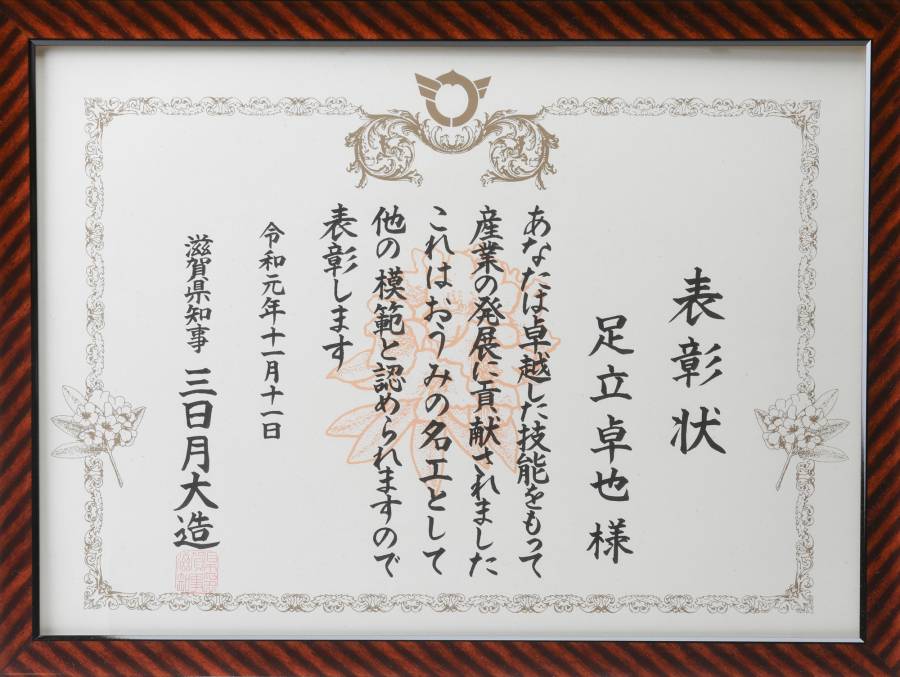 表彰状
足立卓也様
あなたは卓越した技能をもって
産業の発展に貢献されました
これはおうみの名工として
他の模範と認められますので
表彰します
令和元年十一月十一日
滋賀県知事 三日月大造